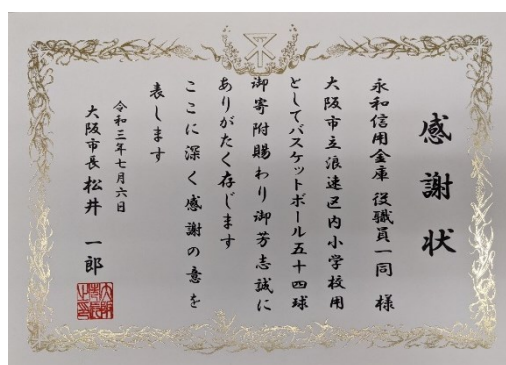 感謝状
永和信用金庫 役職員一同 様
大阪市立浪速区内小学校用
としてバスケットボール五十四球
御寄附賜わり御芳志誠に
ありがたく存じます
ここに深く感謝の意を
表します
令和三年七月六日
大阪市長 松井 一郎